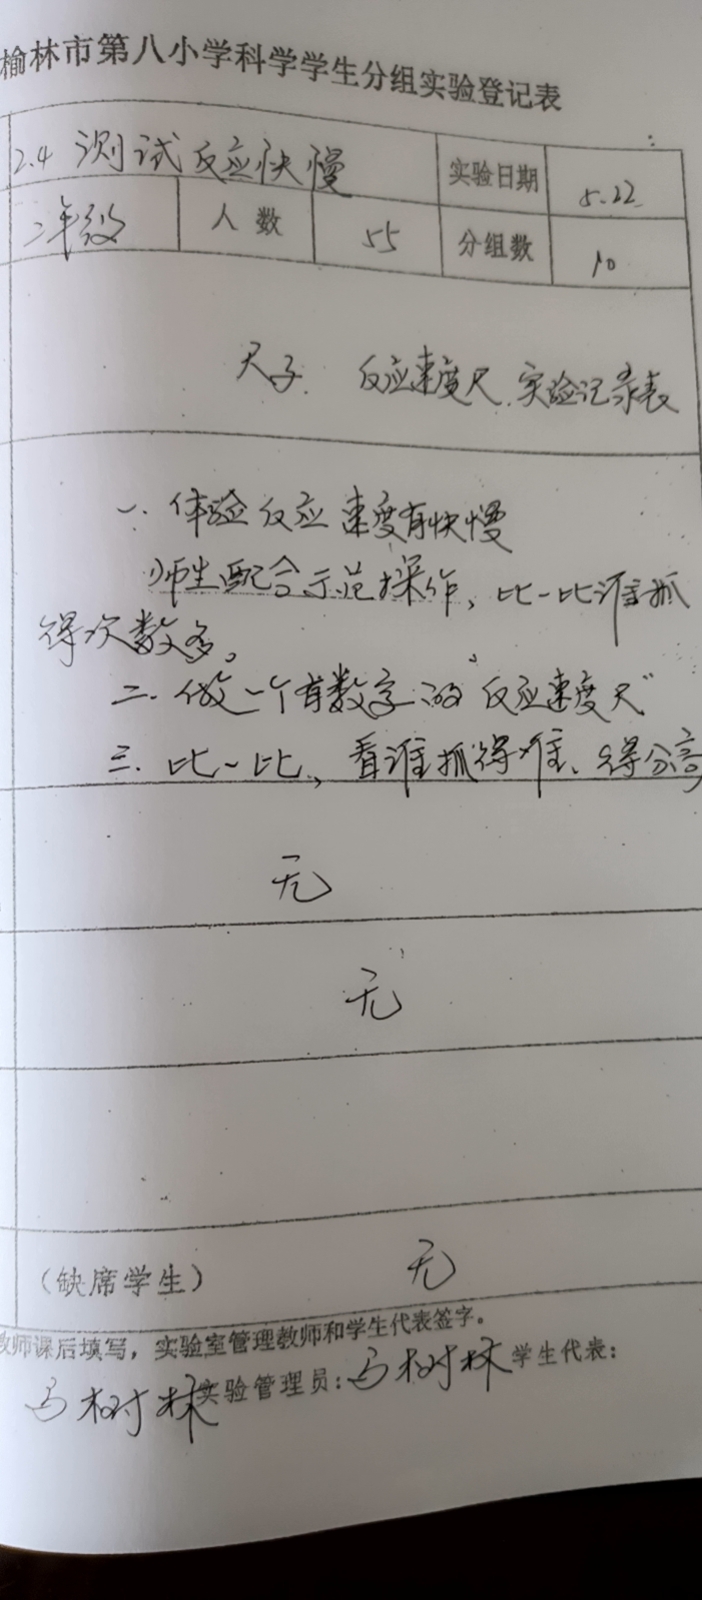 榆林市第八小学科学学生分组实验登记表
2.4 测试反应快慢 实验日期 5.22
二年级 人数 55 分组数 10
尺子. 反应速度尺. 实验记录表
一. 体验反应速度有快慢
师生配合示范操作, 比一比谁抓
得次数多。
二. 做一个有数字的"反应速度尺"
三. 比一比, 看谁抓得准、得分高
无
无
(缺席学生) 无
教师课后填写，实验室管理教师和学生代表签字。
马树林 实验管理员: 马树林 学生代表: